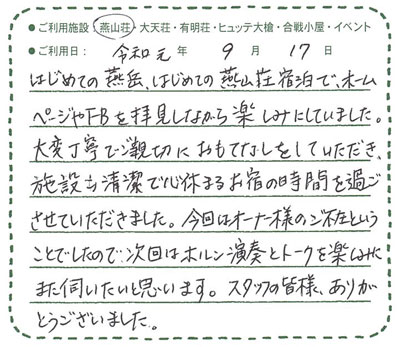 ●ご利用施設：燕山荘・大天荘・有明荘・ヒュッテ大槍・合戦小屋・イベント
●ご利用日：令和元年 9月 17日
はじめての燕岳、はじめての燕山荘宿泊で、ホーム
ページやFBを拝見しながら楽しみにしていました。
大変丁寧でご親切におもてなしをしていただき、
施設も清潔で心休まるお宿の時間を過ご
させていただきました。今回はオーナー様のご不在という
ことでしたので次回はホルン演奏とトークを楽しみに
また伺いたいと思います。スタッフの皆様、ありが
とうございました。